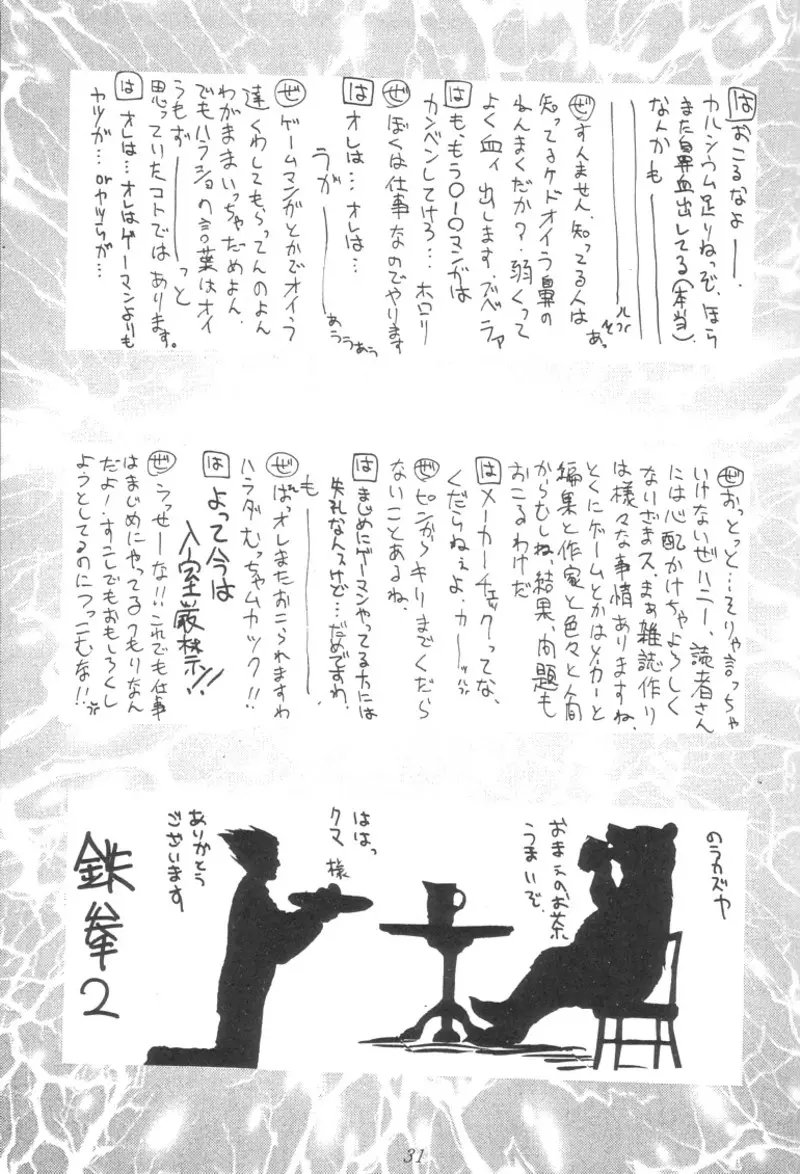 は おこるなよ――.
カルシウム足りねっぞ、ほら
また鼻血出してる(本当)
なんかも――
ぜ すんません、知ってる人は
知ってるケドオイラ鼻の
ねんまくだか?弱くって
よく血ィ出します。ブベラァ
は も、もう〇-〇マンガは
カンベンしてけろ…ホロリ
ぜ ぼくは仕事なのでやります
は オレは…オレは…
うが――
あううあう
ぜ ゲームマンガとかでオイラ
達くわしてもらってんのよん
わがままいっちゃだめよん、
でもハラショの言葉はオイ
うもず――っと
思っていたコトではあります。
は オレは…オレはゲーマンよりも
ヤツが…orヤツらが…
ぜ おっとっと…そりゃ言っちゃ
いけないぜハニー、読者さん
には心配かけちゃよろしく
ないざまス、まぁ雑誌作り
は様々な事情ありますね、
とくにゲームとかはメーカーと
編集と作家と色々と人間
からむしね、結果、問題も
おこるわけだ
は メーカーチェックってな、
くだらねぇよ、カーッ
ぜ ピンからキリまでくだら
ないことあるね、
は まじめにゲーマンやってる方には
失礼なんスけど…だめですわ、
も――
ぜ ばっオレまたおこられますわ
ハラダむっちゃムカック!!
は よって今は
入室厳禁!!
ぜ うっせーな!!これでも仕事
はまじめにやってるつもりなん
だよ!すこしでもおもしろくし
ようとしてるのにつっこむな!!
のうカズヤ
おまえのお茶
うまいぞ、
ははっ
クマ様
ありがとう
ございます
鉄拳2
31